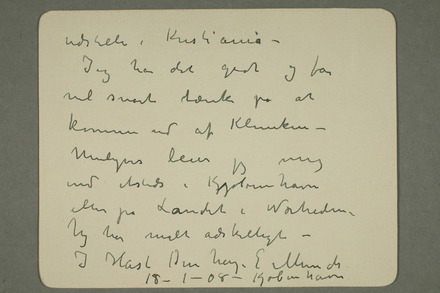 udstille i Kristiania –
Jeg har det godt og bør
vel snart tænke på at
komme ud af Kliniken –
Muligens leier jeg mig
ind etsteds i Kjøbenhavn
eller på Landet i Nærheden.
Jeg har malt adskilligt –
I Hast Din heng. E Munch
18 – 1 – 08 – Kjøbenhavn